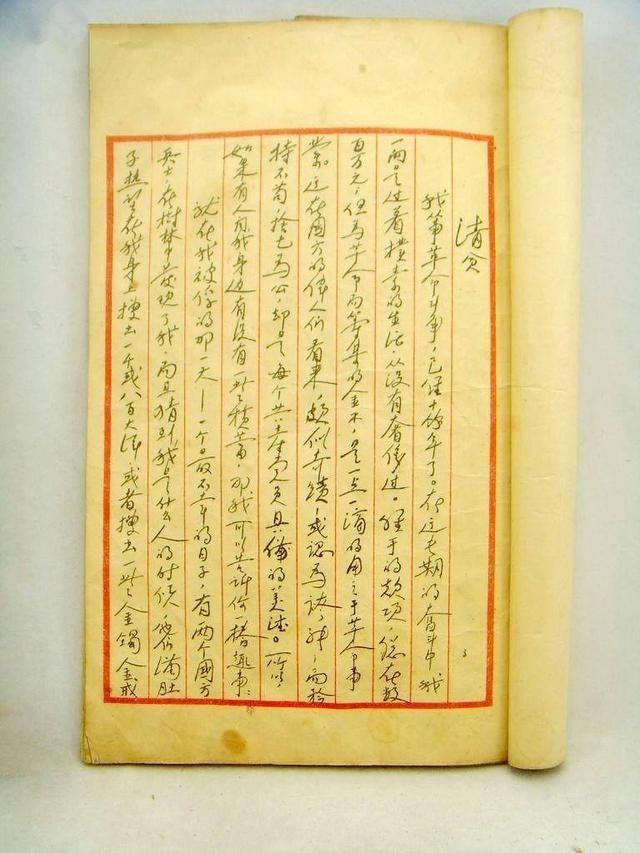 清贫
我從事革命斗争,已经十余年了。在这長期的奮斗中,我
一向是过着樸素的生活,从没有奢侈过。经手的款项,總在数
百万元;但為革命而籌集的金錢,是一点一滴的用之于革命事
業。这在國方的偉人们看来,颇似奇蹟,或認為誇張;而矜
持不苟,捨己為公,却是每个共产党员具備的美德。所以,
如果有人问我身边有没有一些積蓄,那我可以告訴你一樁趣事:
就在我被俘的那一天——一个最不幸的日子,有两个國方
兵士,在樹林中發現了我,而且猜到我是什么人的时候,他们滿肚
子热望在我身上搜出一千或八百大洋,或者搜出一些金鐲金戒